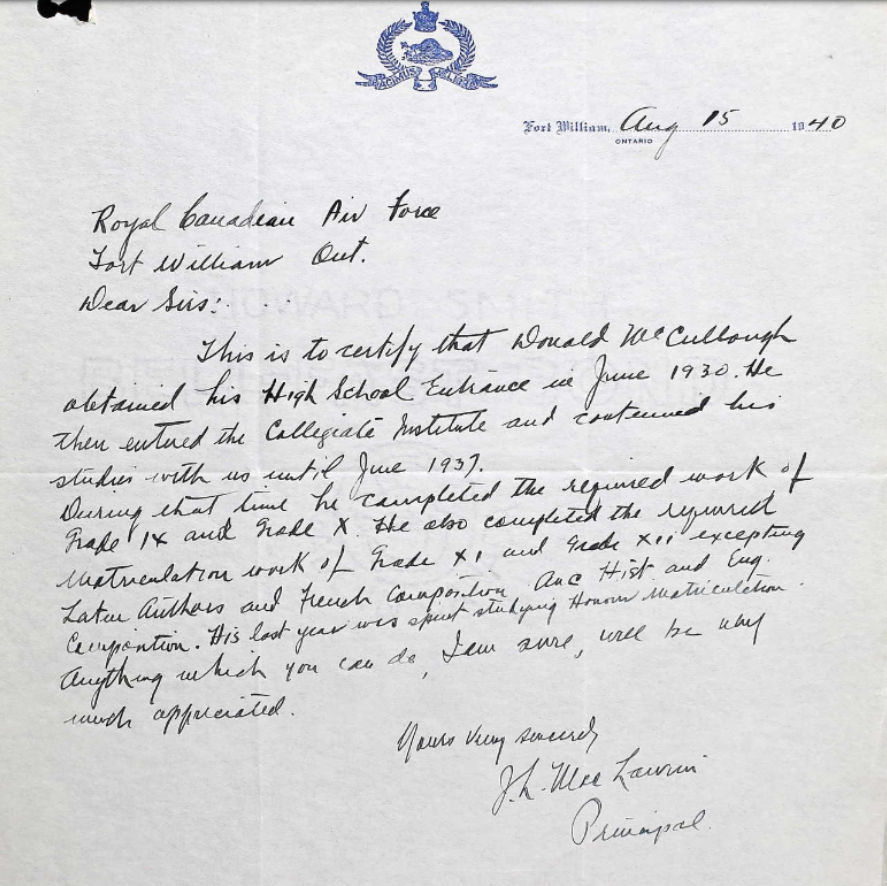 Fort William, Aug 15 1940
ONTARIO
Royal Canadian Air Force
Fort William Ont.
Dear Sirs:
This is to certify that Donald McCullough
obtained his High School Entrance in June 1930. He
then entered the Collegiate Institute and continued his
studies with us until June 1937.
During that time he completed the required work of
Grade IX and Grade X. He also completed the required
Matriculation work of Grade XI and Grade XII excepting
Latin Authors and French Composition Anc Hist and Eng.
Composition. His last year was spent studying Honour Matriculation.
Anything which you can do, I am sure, will be very
much appreciated.
Yours very sincerely
J.L. MacLaurin
Principal.